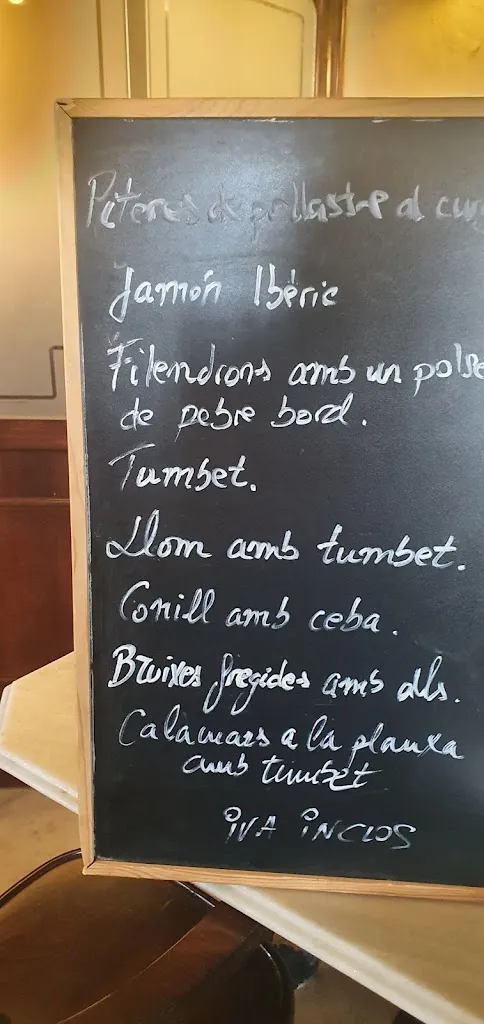 Piteres de pollastre al
Jamón Ibéric
Filendrons amb un
de pebre bord.
Tumbet.
Llom amb tumbet.
Conill amb ceba.
Bruixes fregides amb alls.
Calamars a la planxa
amb tumbet
iVA iNCLOS